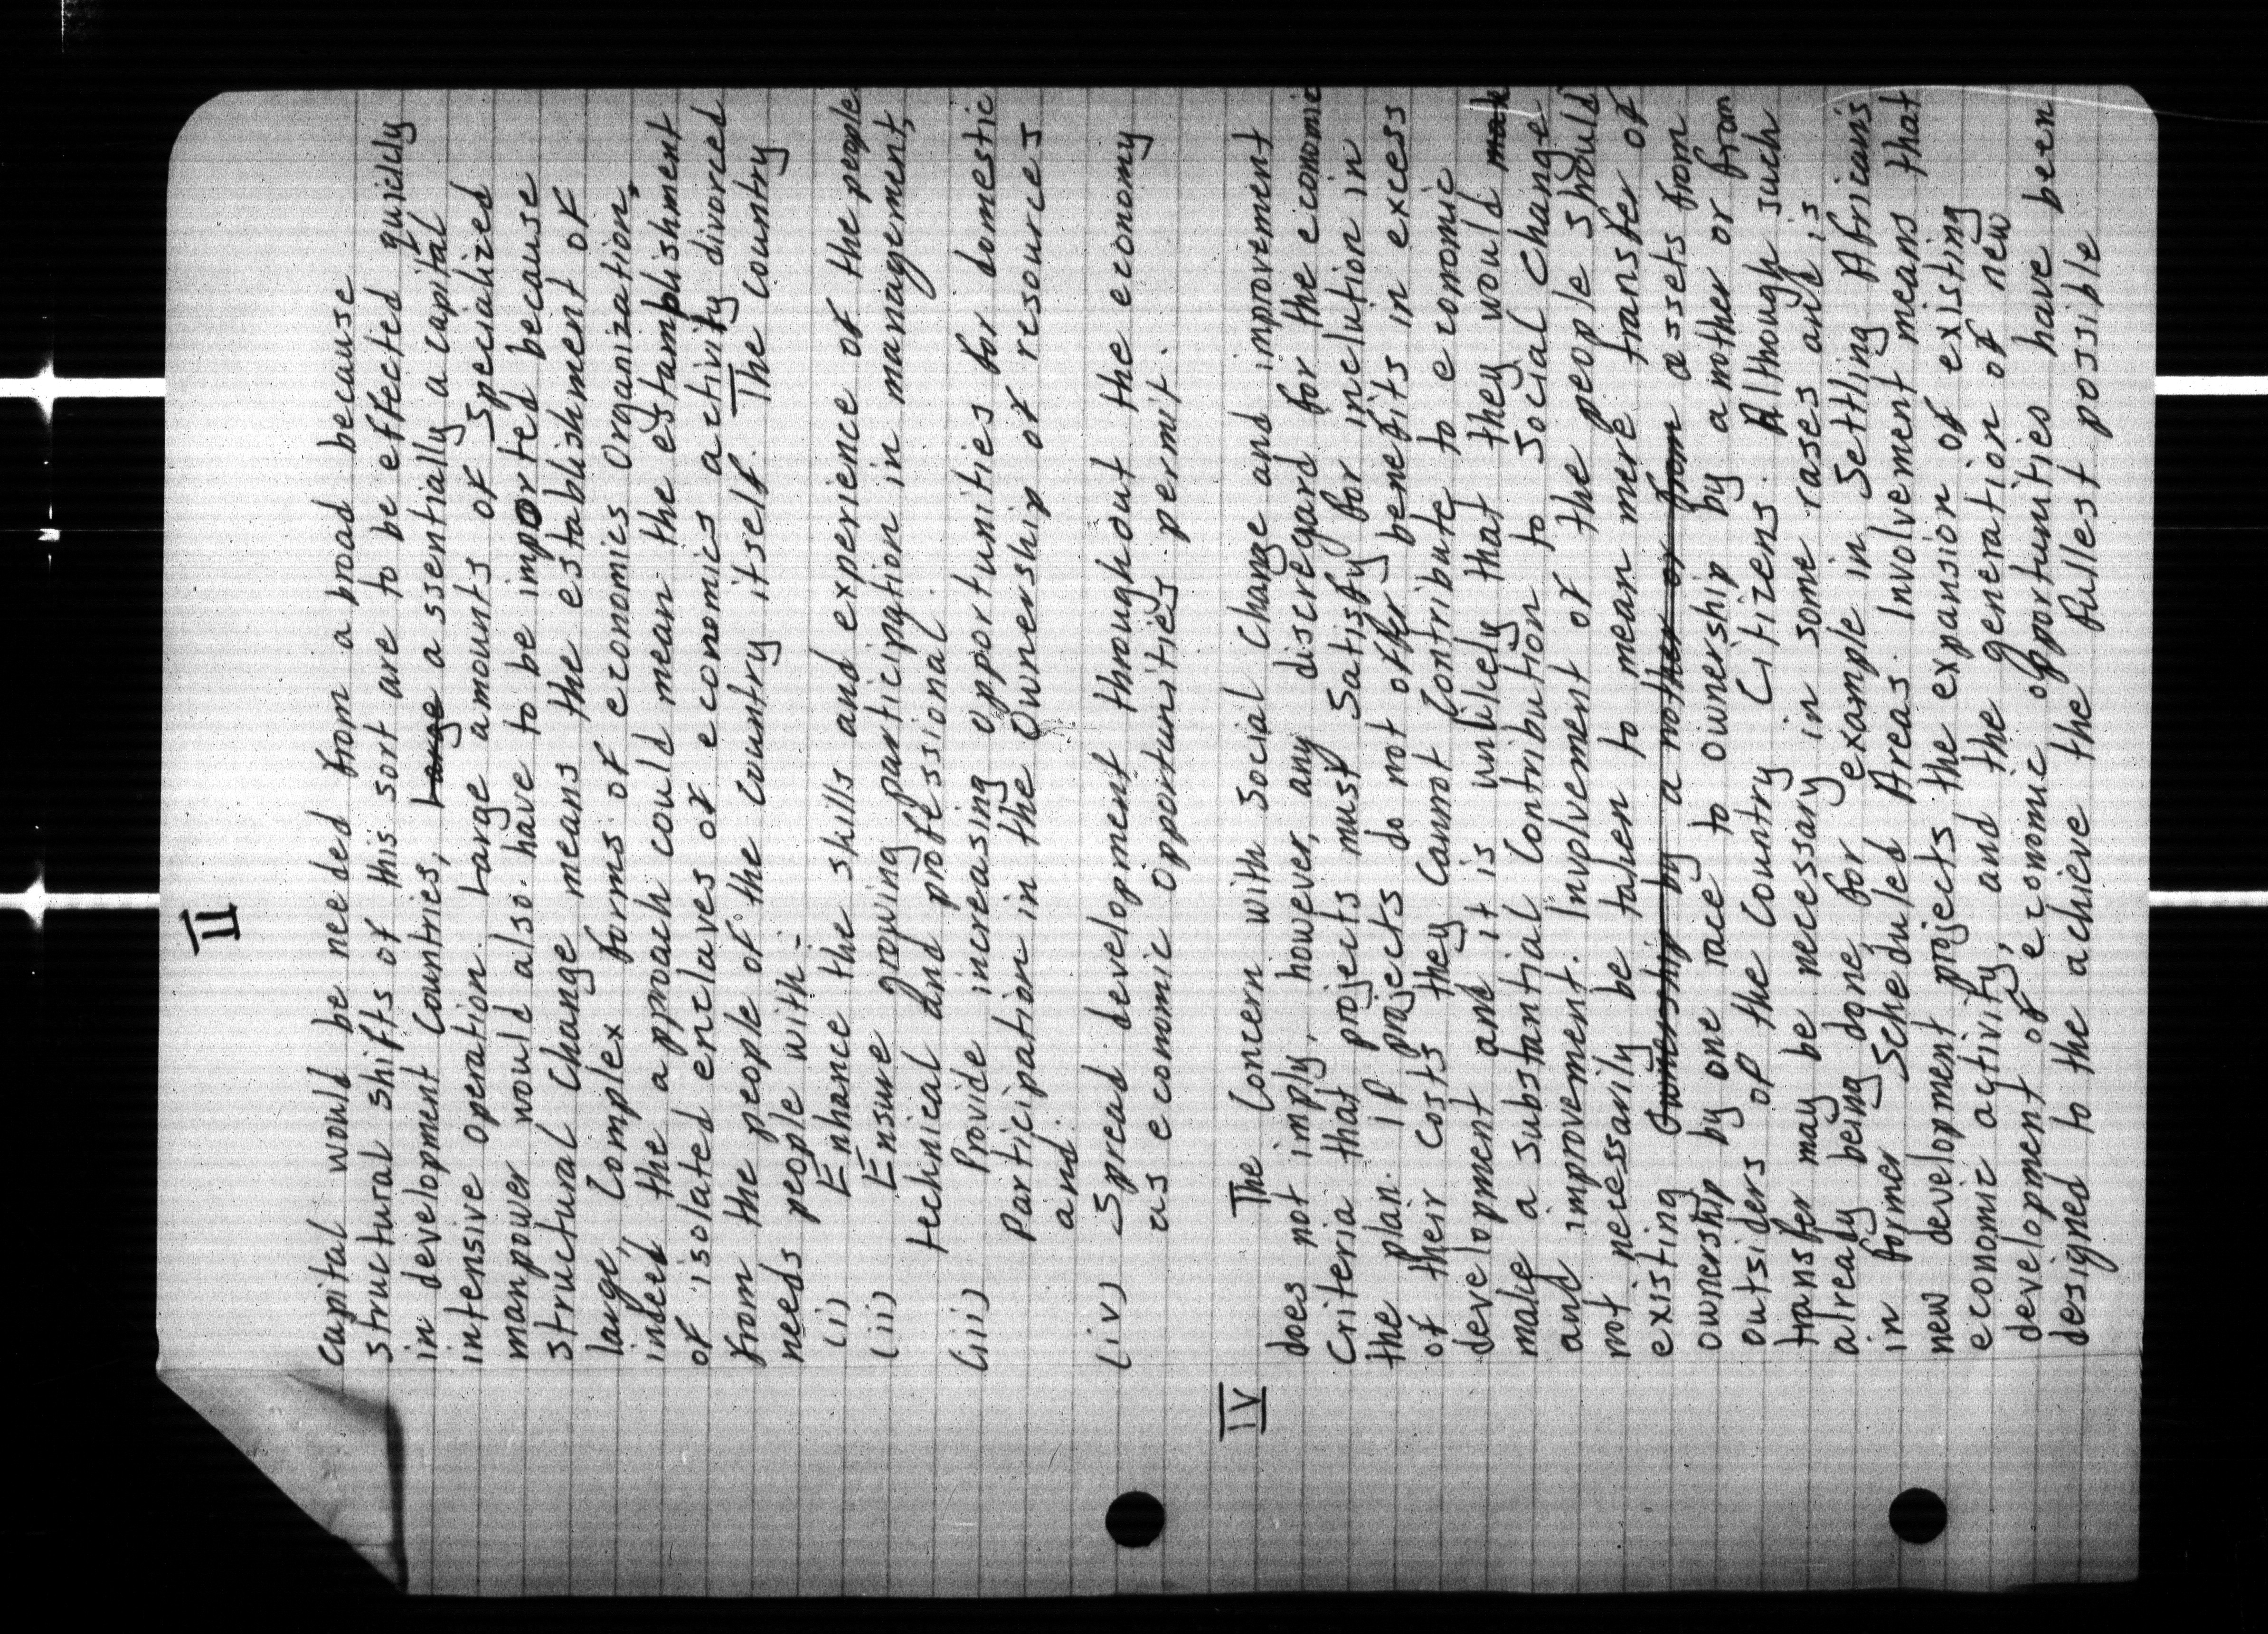 II
Capital would be needed from a broad because
structural shifts of this sort are to be effected quickly
in development Countries, Large assentially a capital
intensive operation. Large amounts of Specialized
manpower would also. have to be imported because
structural Change means the establishment of
large, Complex forms of economics Organization,
indeed the approach could mean the estamplishment
of isolated enclaves of economics activity divorced
from the people of the country itself. The country
needs people with:-
(i) Enhance the skills and experience of the people.
(ii) Ensure growing participation in management,
technical and professional.
(iii) Provide increasing opportunities for domestic
Participation in the Ownership of resources
and.
(iv) Spread development throughout the economy
as economic Opportunities permit.
IV The Concern with Social Change and improvement
does not imply, however, any discregard for the economic
Criteria that projects must Satisfy for inclution in
the plan. if projects do not offer benefits in excess
of their costs they Cannot Contribute to economic
development and it is unlikely that they would mak
make a substantial Contribution to Social Change
and improvement. Involvement of the people should
not necessarily be taken to mean mere transfer of
existing Ownership by a nother or from assets from
ownership by one race to ownership by another or from
outsiders of the Country Citizens. Although such
transfer may be necessary in some rases and is
already being done, for example in Settling Africans
in former Scheduled Areas. Involvement means that
new development projects the expansion of existing
economic activity, and the generation of new
development of economic opportunities have been
designed to the achieve the fullest possible